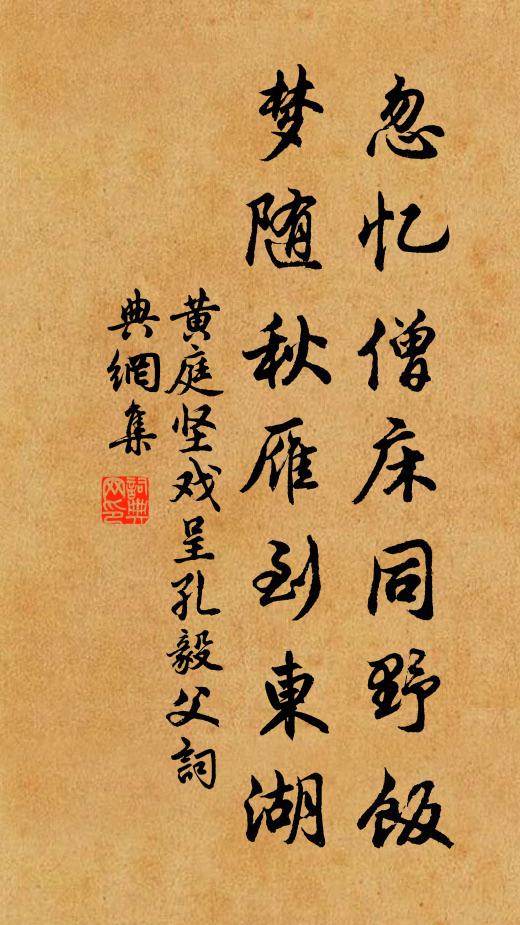 忽忆僧床同野饭
梦随秋雁到東湖
黄庭坚戏呈孔毅父詞
典網集
詞典
网印